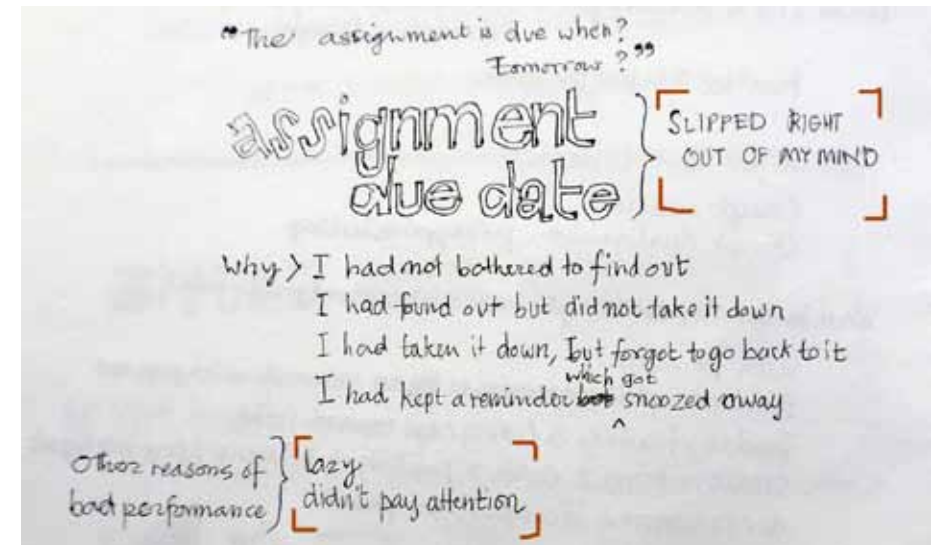 "The assignment is due when?
Tomorrow?"
assignment
due date
SLIPPED RIGHT
OUT OF MY MIND
Why > I had not bothered to find out
I had found out but did not take it down
I had taken it down, but forgot to go back to it
which got
I had kept a reminder snoozed away
Other reasons of
bad performance
lazy
didn't pay attention